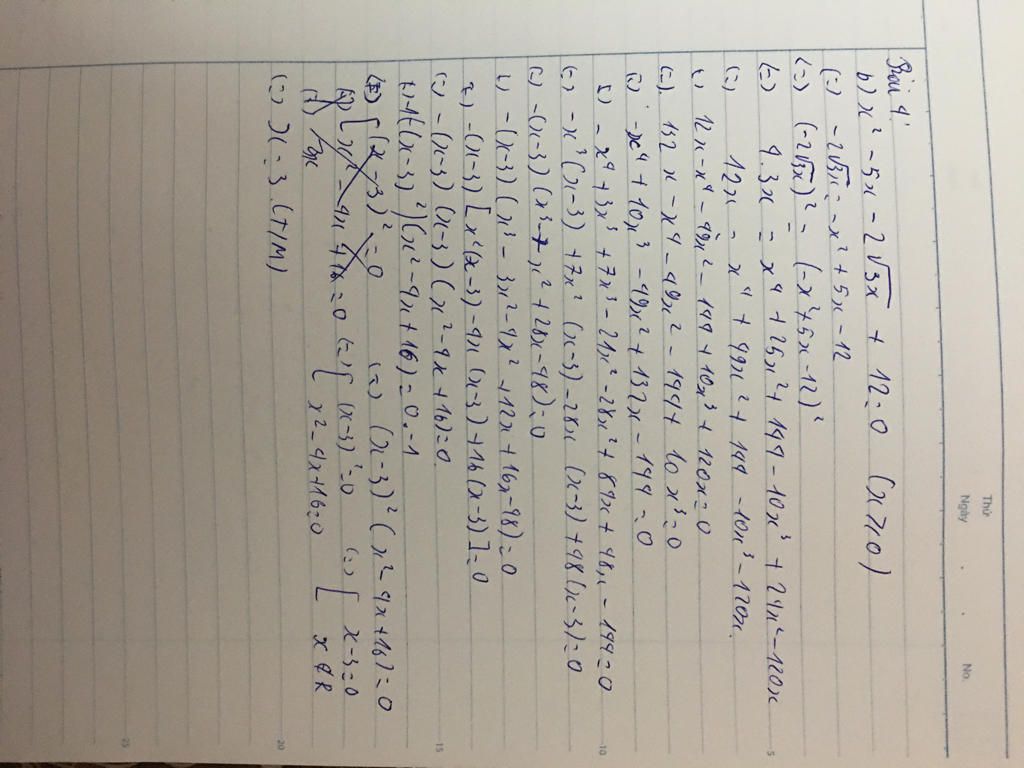 Thứ
Ngày . . No.
Bài 4:
b) x² - 5x - 2√3x + 12 = 0 (x ⩾ 0)
(=) -2√3x = -x² + 5x - 12
(=) (-2√3x)² = (-x² + 5x - 12)²
(=) 4.3x = x⁴ + 25x² + 144 - 10x³ + 24x² - 120x
(=) 12x = x⁴ + 49x² + 144 - 10x³ - 120x.
(=) 12x - x⁴ - 49x² - 144 + 10x³ + 120x = 0
(=) 132x - x⁴ - 49x² - 144 + 10x³ = 0
(=) -x⁴ + 10x³ - 49x² + 132x - 144 = 0
(=) -x⁴ + 3x³ + 7x³ - 21x² - 28x² + 84x + 48x - 144 = 0
(=) -x³(x-3) + 7x²(x-3) - 28x(x-3) + 48(x-3) = 0
(=) -(x-3)(x³ - 7x² + 28x - 48) = 0
(=) -(x-3)(x³ - 3x² - 4x² + 12x + 16x - 48) = 0
(=) -(x-3)[x²(x-3) - 4x(x-3) + 16(x-3)] = 0
(=) -(x-3)(x-3)(x² - 4x + 16) = 0
(=) -1((x-3)²)(x² - 4x + 16) = 0.-1
(x-3)² = 0 (=) (x-3)²(x² - 4x + 16) = 0
x² - 4x + 16 = 0 (=) [ (x-3)² = 0 (=) [ x-3 = 0
x² - 4x + 16 = 0 x ∉ R
(=) x = 3 (t/M)
5
10
15
20
25